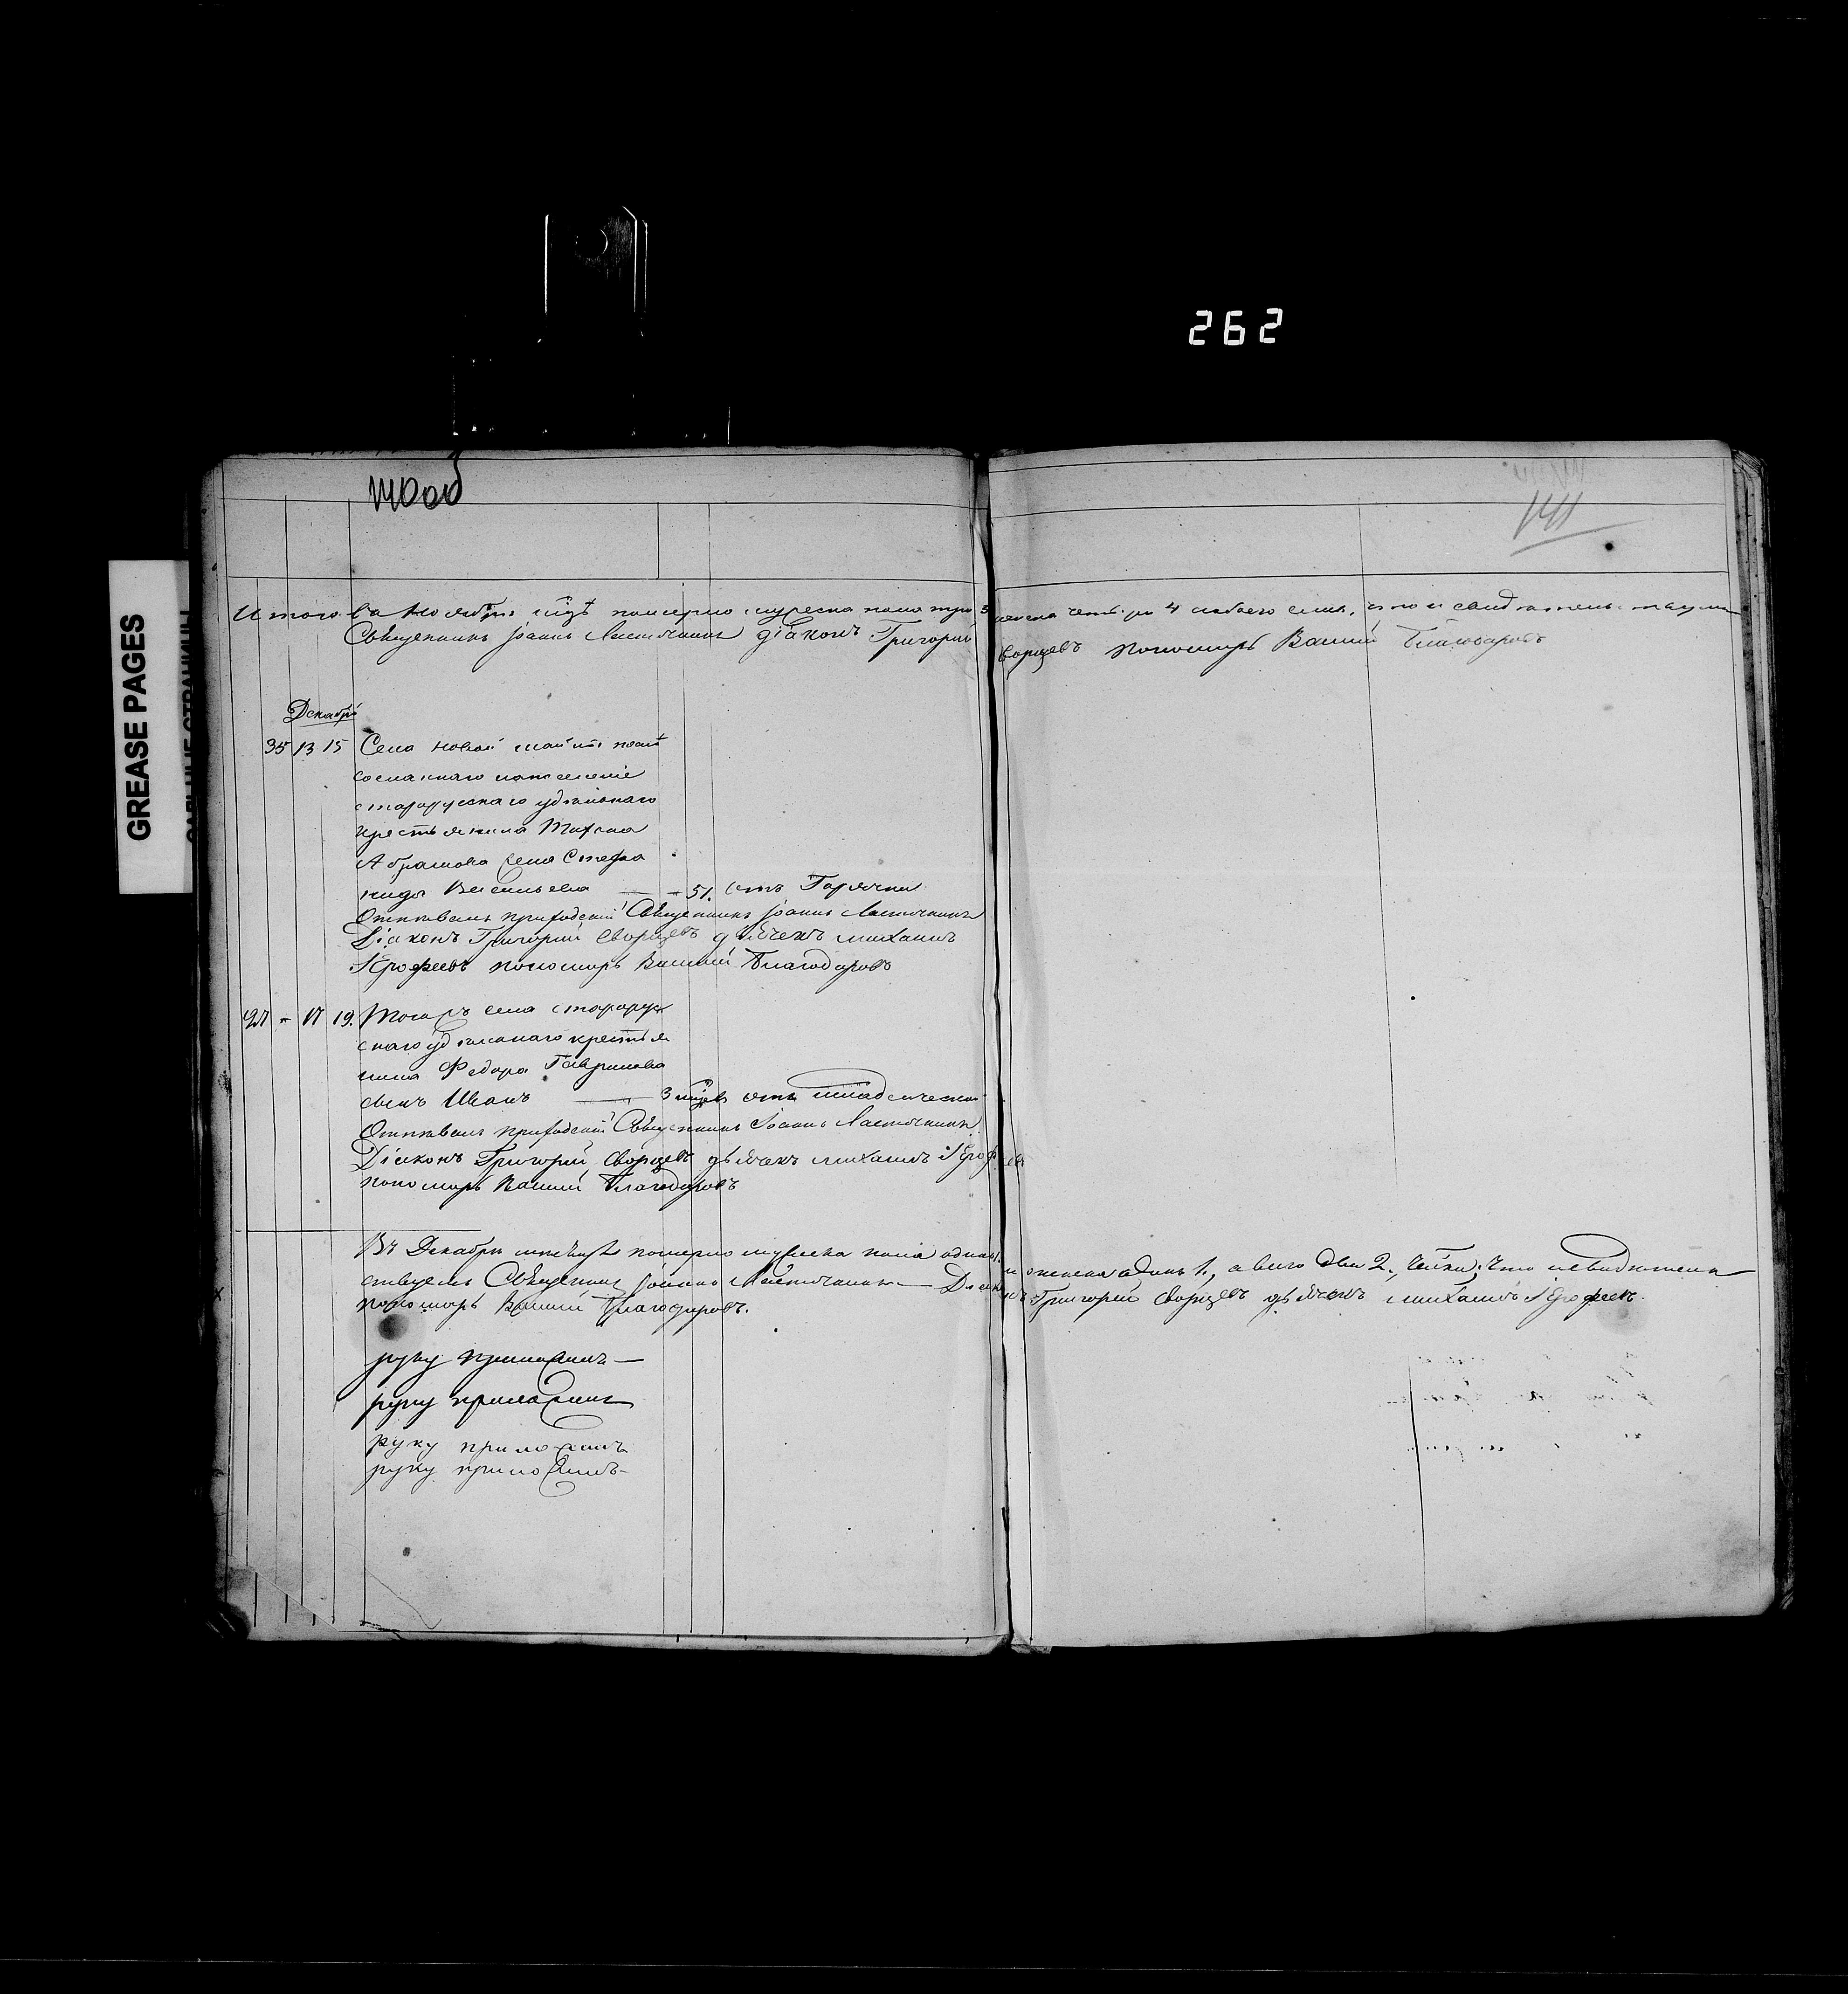 262
GREASE PAGES
141
Итого въ Ноябрѣ мцѣ померло мужеска пола три 3 женска четыре 4 обоего семь, что и свидѣтельствуемъ
Священникъ Іоаннъ Ласточкинъ діаконъ Григорій Сворцевъ пономарь Василій Благодаровъ
Декабрь
35 13 15 Села Новой
старорускаго удѣльнаго
крестьянина
Абрамова жена Стефа
нида Васильева — 51. отъ Горячки
Отпѣвалъ приходскій Священникъ Іоаннъ Ласточкинъ
Діаконъ Григорій Сворцевъ дьячекъ Михаилъ
Іерофеевъ пономарь Василій Благодаровъ
27 - 17 19. Тогожъ села старорус
скаго удѣльнаго крестья
нина Федора Гаврилова
сынъ Иванъ — 3 мцев отъ младенческой
Отпѣвалъ приходскій Священникъ Іоаннъ Ласточкинъ
Діаконъ Григорій Сворцевъ дьячекъ Михаилъ Іерофеевъ
пономарь Василій Благодаровъ
Въ Декабрѣ мѣсяцѣ померло мужеска пола одинъ 1. и женска одинъ 1., а всего два 2., Что и свидѣтель
ствуемъ Священникъ Іоаннъ Ласточкинъ — Діаконъ Григорій Сворцевъ дьячекъ Михаилъ Іерофеевъ.
пономарь Василій Благодаровъ.
руку приложилъ —
руку приложилъ
руку приложилъ
руку приложилъ -